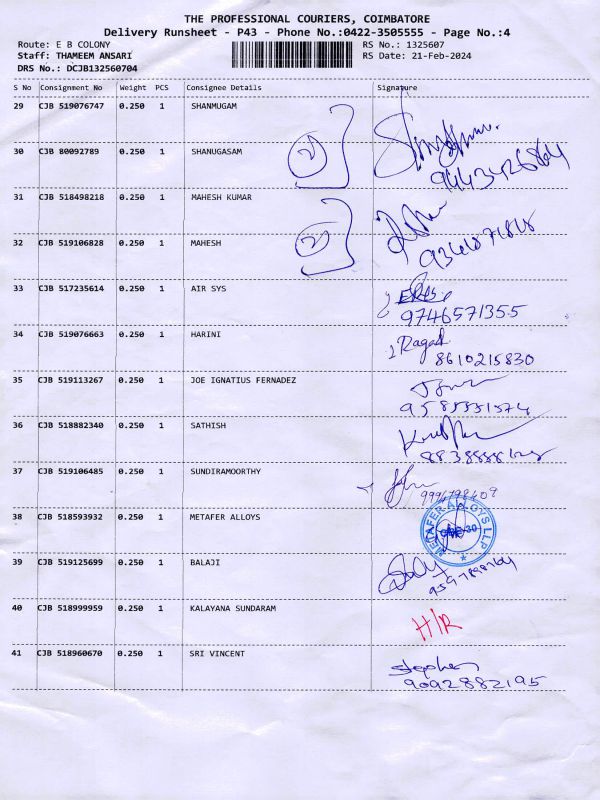 THE PROFESSIONAL COURIERS, COIMBATORE
Delivery Runsheet - P43 - Phone No.:0422-3505555 - Page No.:4
Route: E B COLONY RS No.: 1325607
Staff: THAMEEM ANSARI RS Date: 21-Feb-2024
DRS No.: DCJB132560704
S No Consignment No Weight PCS Consignee Details Signature
29 CJB 519076747 0.250 1 SHANMUGAM
30 CJB 80092789 0.250 1 SHANUGASAM
2
31 CJB 518498218 0.250 1 MAHESH KUMAR
32 CJB 519106828 0.250 1 MAHESH
2
33 CJB 517235614 0.250 1 AIR SYS
9746571355
34 CJB 519076663 0.250 1 HARINI
Ragad
8610215830
35 CJB 519113267 0.250 1 JOE IGNATIUS FERNADEZ
36 CJB 518882340 0.250 1 SATHISH
37 CJB 519106485 0.250 1 SUNDIRAMOORTHY
38 CJB 518593932 0.250 1 METAFER ALLOYS
METAFER ALLOYS LLP
39 CJB 519125699 0.250 1 BALAJI
40 CJB 518999959 0.250 1 KALAYANA SUNDARAM
H/R
41 CJB 518960670 0.250 1 SRI VINCENT
Stephen
9092882195